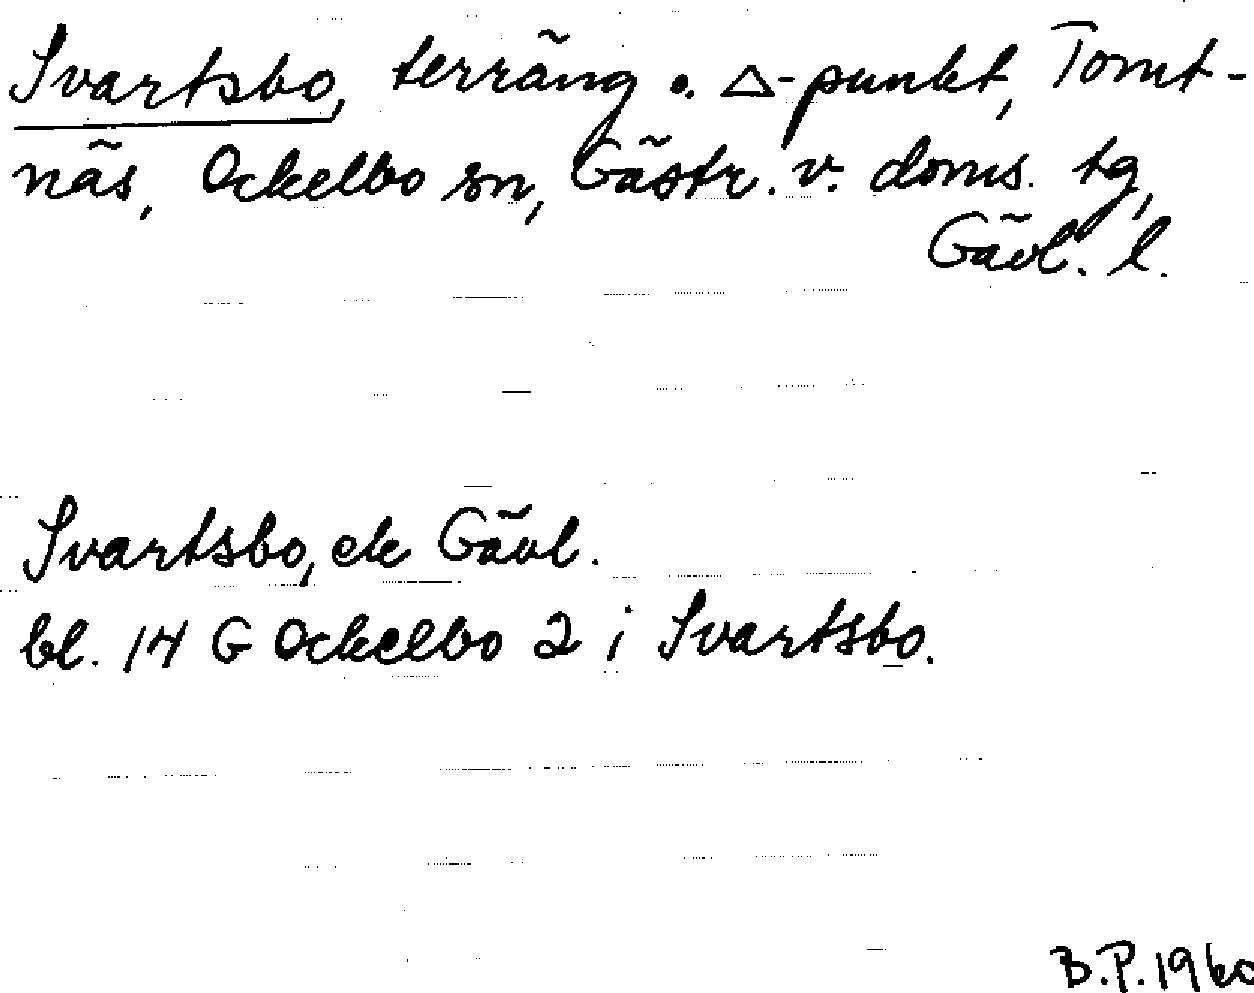 Svartsbo, terräng o. △-punkt, Tomt-
näs, Ockelbo sn, Gästr. v. doms. tg,
Gävl. l.
Svartsbo, ek Gävl.
bl. 14 G Ockelbo 2 i Svartsbo.
B.P. 1960